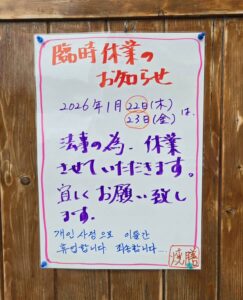 臨時休業の
お知らせ
2026年1月22日(木)
23日(金)は、
法事の為、休業
させていただきます。
宜しくお願い致し
ます。
개인 사정으로 이틀간
휴업합니다 죄송합니다...
焼膳